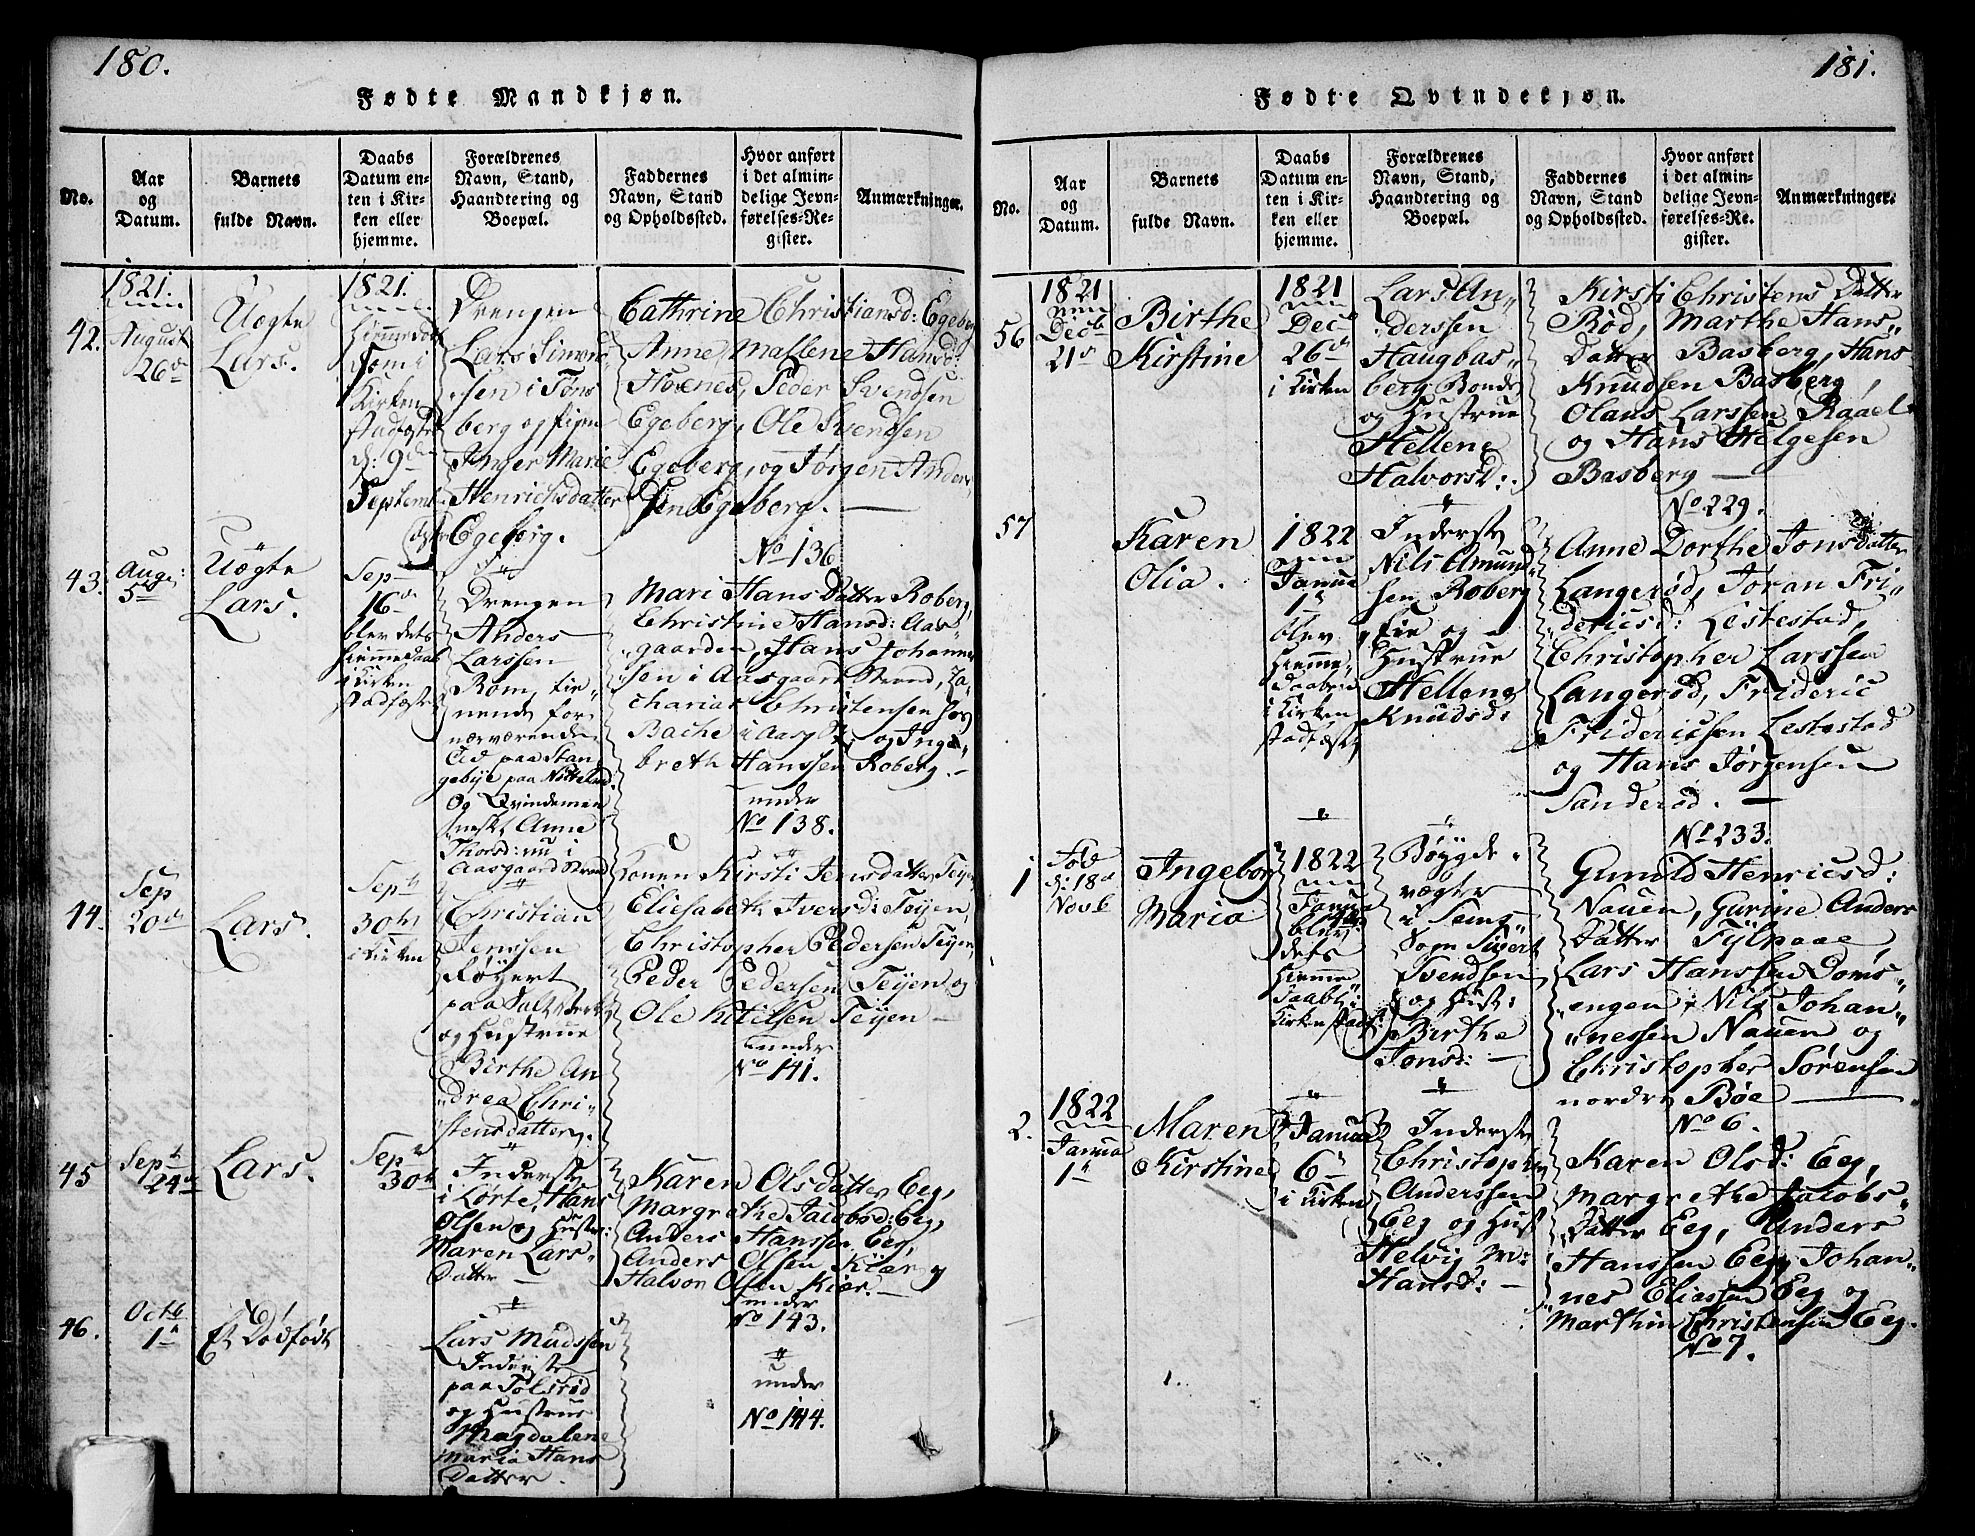 180.
Fødte Mandkjøn.
No.
Aar
og
Datum.
Barnets
fulde Navn.
Daabs
Datum en-
ten i Kir-
ken eller
hjemme.
Forældrenes
Navn, Stand,
Haandtering og
Boepæl.
Faddernes
Navn, Stand
og Opholdssted.
Hvor anført
i det almin-
delige Jevn-
førelses-Re-
gister.
Anmærkninger.
42.
1821.
August
26de
Uægte
Lars.
1821.
Kirken
stadfæstet
d: 9de
Septemb
Drengen
Lars Simon-
sen i Tøns
berg og Pigen
Inger Marie
Henrichsdatter
Egeberg.
Cathrine Christiansd: Egeberg
Anne Mallene Hansd:
Peder Svendsen
Egeberg, Ole Svendsen
Egeberg, og Jørgen Anders
sen Egeberg. —
No 136
43.
Aug:
5te
Uægte
Lars.
Sep
16de
blev dets
hiemmedaab
i Kirken
stadfæstet
Drengen
Anders
Larssen
Rom, tie-
nende for
nærværende
Tid paa Stan-
gebye paa Nøtteland
og Qvindemen
nesket Anne
Thorsd: nu i
Aasgaardstrand
Mari Hans Datter Roberg,
Christine Hansd: Aas-
gaarden, Hans Johannes
sen i Aasgaardstrand, Za-
charias Christensen
Bache i Aasg og Inge-
breth Hanssen Roberg. —
under
No 138.
44.
Sep
20de
Lars.
Sept
30te
i Kirken
Christian
Jenssen
Røyert
paa Saltværket
og Hustrue
Birthe An
drea Chri-
stensdatter.
Konen Kirsti Jensdatter Teijen
Elisabeth Iversd: Teijen,
Christopher Pedersen Teijen,
Peder Pedersen Teijen og
Ole Ketilsen Teijen —
under
No 141.
45
Sept
24de
Lars.
Sep
30te
Inderste
i Lørte, Hans
Olsen og Hustr:
Maren Lars-
datter —
Karen Olsdatter Eeg,
Margrethe Jacobsd: Eeg,
Anders Hanssen Eeg,
Anders Olsen Kiær og
Halvor Olsen Kiær. —
under
No 143.
46.
Octb
1te
Et Dødfødt
Lars Madssen
Inderste
paa Tolsrød
og Hustrue
Magdalene
Maria Hans
datter.
under
No 144.
181.
Fødte Qvindekjøn.
No.
Aar
og
Datum.
Barnets
fulde Navn.
Daabs
Datum en-
ten i Kir-
ken eller
hjemme.
Forældrenes
Navn, Stand,
Haandtering og
Boepæl.
Faddernes
Navn, Stand
og Opholdssted.
Hvor anført
i det almin-
delige Jevn-
førelses-Re-
gister.
Anmærkninger.
56
1821
Decb
21de
Birthe
Kirstine
1821
Dec
26de
i Kirken
Lars An-
derssen
Haugbas-
berg Bonde
og Hustrue
Hellene
Halvorsd:
Kirsti Christens Datter
Rød, Marthe Hans
Datter Basberg, Hans
Knudsen Basberg,
Olaus Larssen Raael
og Hans Helgesen
Basberg —
No 229.
57
Karen
Olia.
1822
Janua
1te
blev
hiemme-
daaben
i Kirken
stadfæstet
Inderste
Nils Amund-
sen Roberg
eie og
Hustrue
Hellene
Knudsd:
Anne Dorthe Jonsdatter
Langerød, Jøran Fri-
dericsd: Lestestad,
Christopher Larssen
Langerød, Frideric
Fridericsen Lestestad
og Hans Jørgensen
Sanderød. —
No 233.
1
Fød
d: 18de
Novb
Ingeborg
Maria
1822
Janua
blev
dets
hiemme
daab i
Kirken stadf:
Bøygde-
vægter
i Sems
Sogn Sivert
Svendsen
og Hust:
Birthe
Jonsd: —
Gunild Henricsd:
Nauen, Gurine Anders
Datter Fylpaae
Lars Hanssen Doms-
engen, Nils Johan-
nessen Nauen og
Christopher Sørensen
nordre Bøe —
No 6.
2.
1822
Janua
1te
Maren
Kirstine
Janua
6te
i Kirken
Inderste
Christopher
Anderssen
Eeg og Hust
Helvig M:
Hansd: —
Karen Olsd: Eeg,
Margrethe Jacobs-
Datter Eeg, Anders
Hanssen Eeg, Johan-
nes Eliassen Eeg og
Marthin Christensen Eeg.
No 7.